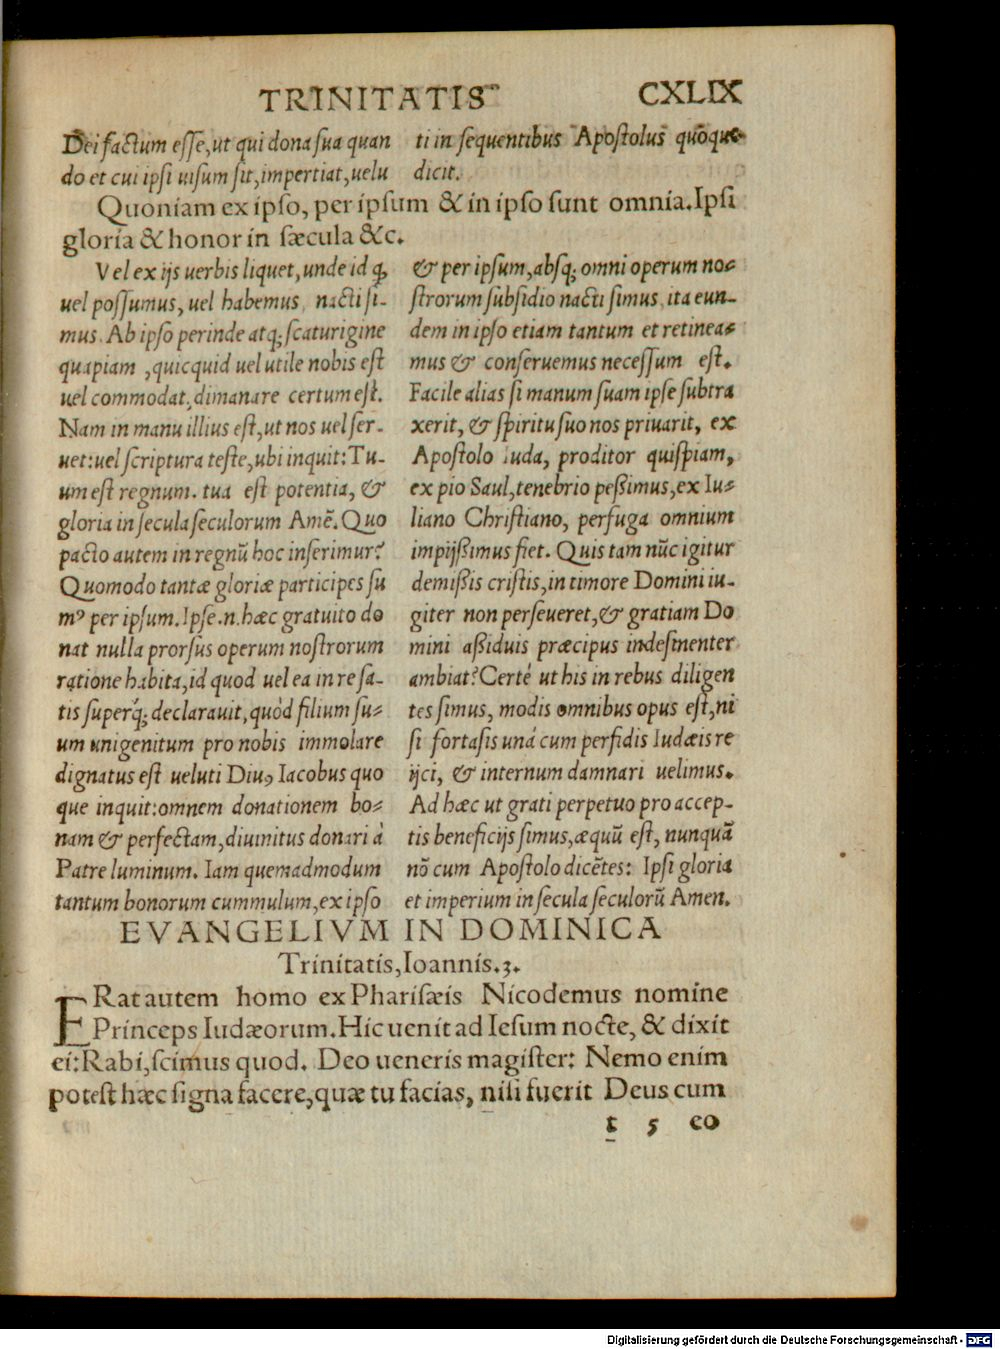 TRINITATIS CXLIX
Dei factum esse, ut qui dona sua quan
do et cui ipsi uisum sit, impertiat, uelu
ti in sequentibus Apostolus quoque
dicit.
Quoniam ex ipso, per ipsum & in ipso sunt omnia. Ipsi
gloria & honor in sæcula &c.
Vel ex ijs uerbis liquet, unde id q,
uel possumus, uel habemus, nacti si-
mus. Ab ipso perinde atq; scaturigine
quapiam, quicquid uel utile nobis est
uel commodat, dimanare certum est.
Nam in manu illius est, ut nos uel ser-
uet: uel scriptura teste, ubi inquit: Tu-
um est regnum. tua est potentia, &
gloria in secula seculorum Amē. Quo
pacto autem in regnū hoc inserimur?
Quomodo tantæ gloriæ participes su
mꝰ per ipsum. Ipse .n. hæc gratuito do
nat nulla prorsus operum nostrorum
ratione habita, id quod uel ea in re sa-
tis superq́; declarauit, quòd filium su-
um unigenitum pro nobis immolare
dignatus est ueluti Diuꝰ Iacobus quo
que inquit: omnem donationem bo-
nam & perfectam, diuinitus donari à
Patre luminum. Iam quemadmodum
tantum bonorum cummulum, ex ipso
& per ipsum, absq; omni operum no-
strorum subsidio nacti simus, ita eun-
dem in ipso etiam tantum et retinea-
mus & conseruemus necessum est.
Facile alias si manum suam ipse subtra
xerit, & spiritu suo nos priuarit, ex
Apostolo Iuda, proditor quispiam,
ex pio Saul, tenebrio peßimus, ex Iu-
liano Christiano, perfuga omnium
impijßimus fiet. Quis tam nūc igitur
demißis cristis, in timore Domini iu-
giter non perseueret, & gratiam Do
mini aßiduis præcipus indesinenter
ambiat? Certè ut his in rebus diligen
tes simus, modis omnibus opus est, ni
si fortasis unà cum perfidis Iudæis re
ijci, & internum damnari uelimus.
Ad hæc ut grati perpetuo pro accep-
tis beneficijs simus, æquū est, nunquā
nō cum Apostolo dicētes: Ipsi gloria
et imperium in secula seculorū Amen.
EVANGELIVM IN DOMINICA
Trinitatis, Ioannis. 3.
ERat autem homo ex Pharisæis Nicodemus nomine
Princeps Iudæorum. Hic uenit ad Iesum nocte, & dixit
ei: Rabi, scimus quod. Deo ueneris magister: Nemo enim
potest hæc signa facere, quæ tu facias, nisi fuerit Deus cum
t 5 eo
Digitalisierung gefördert durch die Deutsche Forschungsgemeinschaft - DFG